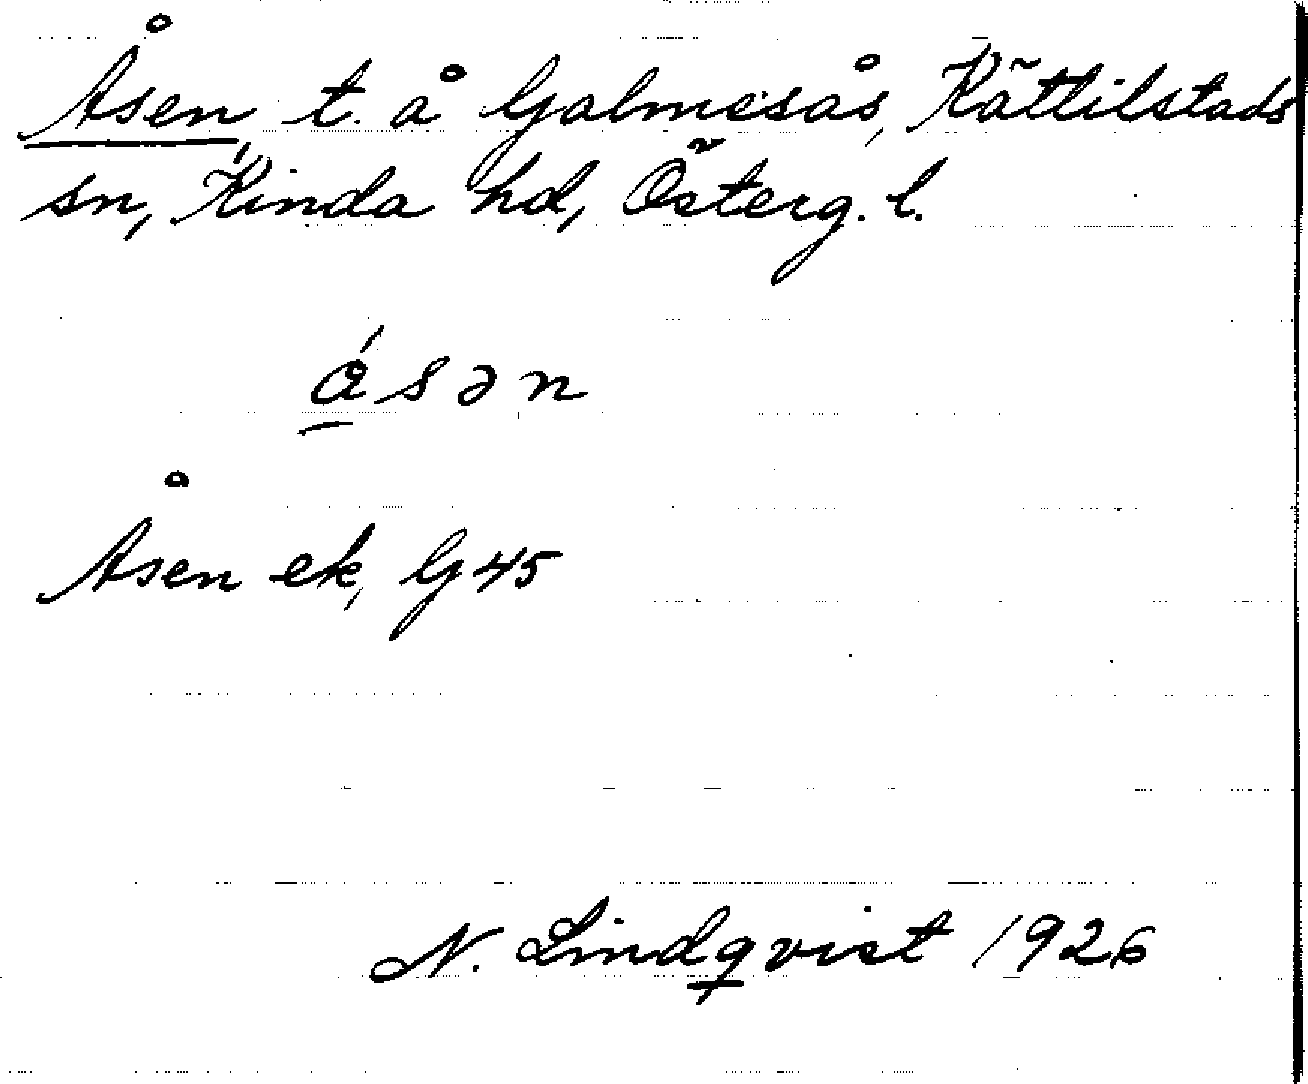 Åsen, t. å Galmesås, Kättilstads
sn, Kinda hd, Österg. l.
ásən
Åsen ek, G 45
N. Lindqvist 1926